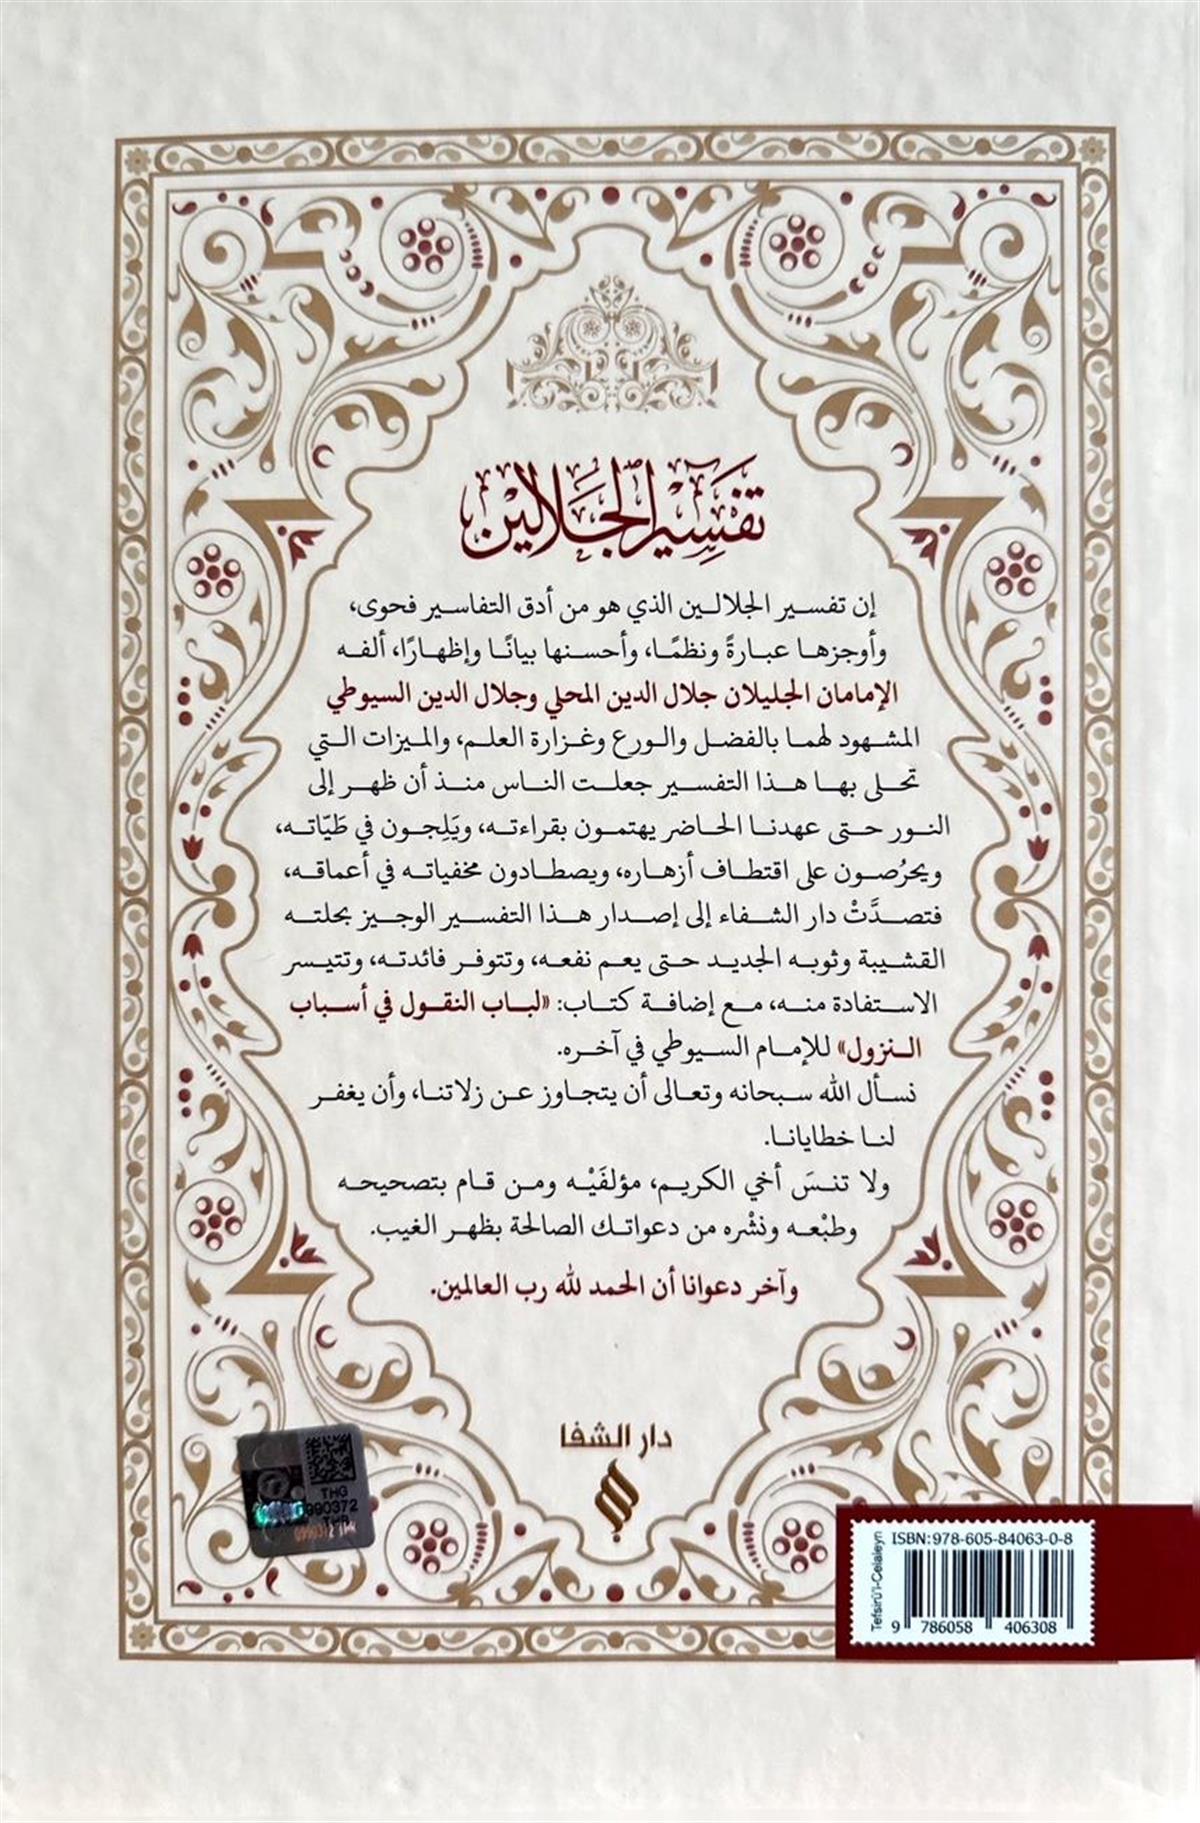 تفسير الجلالين
إن تفسير الجلالين الذي هو من أدق التفاسير فحوى،
وأوجزها عبارةً ونظمًا، وأحسنها بيانًا وإظهارًا، ألفه
الإمامان الجليلان جلال الدين المحلي وجلال الدين السيوطي
المشهود لهما بالفضل والورع وغزارة العلم، والميزات التي
تحلى بها هذا التفسير جعلت الناس منذ أن ظهر إلى
النور حتى عهدنا الحاضر يهتمون بقراءته، ويَلِجون في طَيّاته،
ويحرُصون على اقتطاف أزهاره، ويصطادون مخفياته في أعماقه،
فتصدَّتْ دار الشفاء إلى إصدار هذا التفسير الوجيز بحلته
القشيبة وثوبه الجديد حتى يعم نفعه، وتتوفر فائدته، وتتيسر
الاستفادة منه، مع إضافة كتاب: «لباب النقول في أسباب
النزول» للإمام السيوطي في آخره.
نسأل الله سبحانه وتعالى أن يتجاوز عن زلاتنا، وأن يغفر
لنا خطايانا.
ولا تنسَ أخي الكريم، مؤلفَيْه ومن قام بتصحيحه
وطبْعه ونشْره من دعواتك الصالحة بظهر الغيب.
وآخر دعوانا أن الحمد لله رب العالمين.
دار الشفا
THG
990372
ISBN: 978-605-84063-0-8
Tefsirü'l-Celaleyn
9 786058 406308